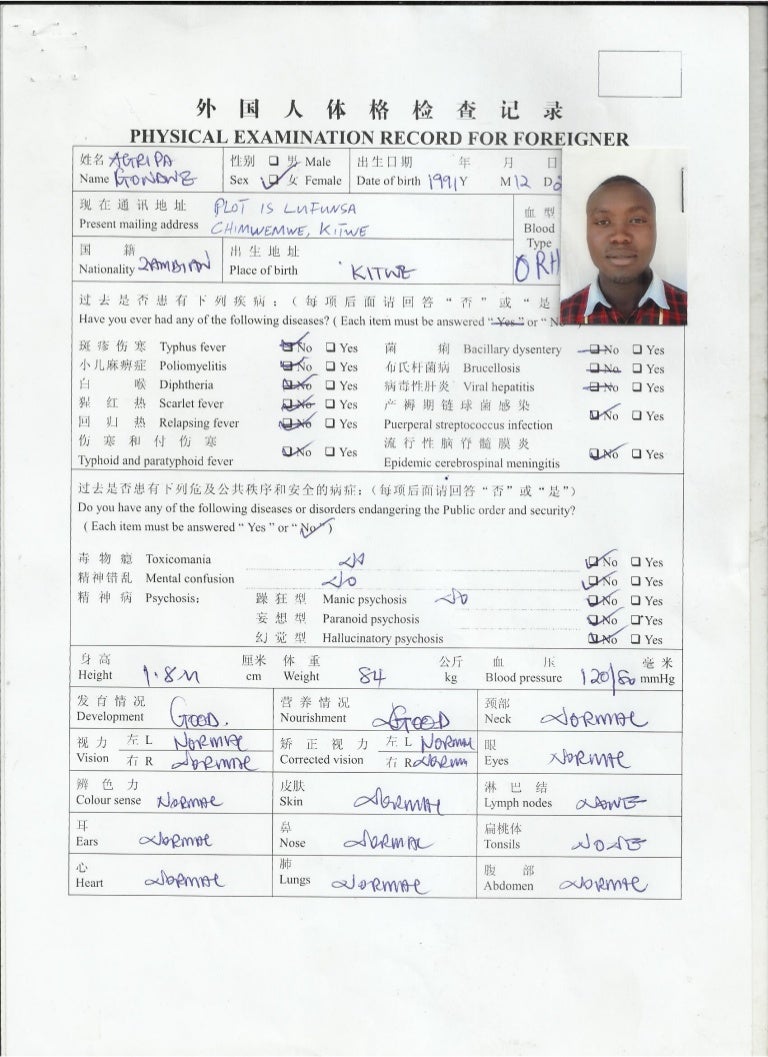 外国人体格检查记录
PHYSICAL EXAMINATION RECORD FOR FOREIGNER
姓名 AGRIPA 性别 男 Male 出生日期 年 月 日
Name Sex 女 Female Date of birth 1991Y M12 D
现在通讯地址 PLOT 15 LUFUNSA 血型
Present mailing address CHIMWEMWE, KITWE Blood
国籍 出生地址 Type
Nationality ZAMBIAN Place of birth KITWE ORH
过去是否患有下列疾病：（每项后面请回答“否”或“是
Have you ever had any of the following diseases? ( Each item must be answered “ Yes ” or “ No
斑疹伤寒 Typhus fever No Yes 菌痢 Bacillary dysentery No Yes
小儿麻痹症 Poliomyelitis No Yes 布氏杆菌病 Brucellosis No Yes
白喉 Diphtheria No Yes 病毒性肝炎 Viral hepatitis No Yes
猩红热 Scarlet fever No Yes 产褥期链球菌感染
回归热 Relapsing fever No Yes Puerperal streptococcus infection No Yes
伤寒和付伤寒 流行性脑脊髓膜炎
Typhoid and paratyphoid fever No Yes Epidemic cerebrospinal meningitis No Yes
过去是否患有下列危及公共秩序和安全的病症：（每项后面请回答“否”或“是”）
Do you have any of the following diseases or disorders endangering the Public order and security?
( Each item must be answered “ Yes ” or “ No ” )
毒物瘾 Toxicomania No No Yes
精神错乱 Mental confusion No No Yes
精神病 Psychosis: 躁狂型 Manic psychosis No No Yes
妄想型 Paranoid psychosis No Yes
幻觉型 Hallucinatory psychosis No Yes
身高 厘米 体重 公斤 血压 毫米
Height 1.8M cm Weight 84 kg Blood pressure 120/80 mmHg
发育情况 营养情况 颈部
Development GOOD. Nourishment GOOD Neck NORMAL
视力 左 L NORMAL 矫正视力 左 L NORMAL 眼
Vision 右 R NORMAL Corrected vision 右 R NORMAL Eyes NORMAL
辨色力 皮肤 淋巴结
Colour sense NORMAL Skin NORMAL Lymph nodes NONE
耳 鼻 扁桃体
Ears NORMAL Nose NORMAL Tonsils NONE
心 肺 腹部
Heart NORMAL Lungs NORMAL Abdomen NORMAL